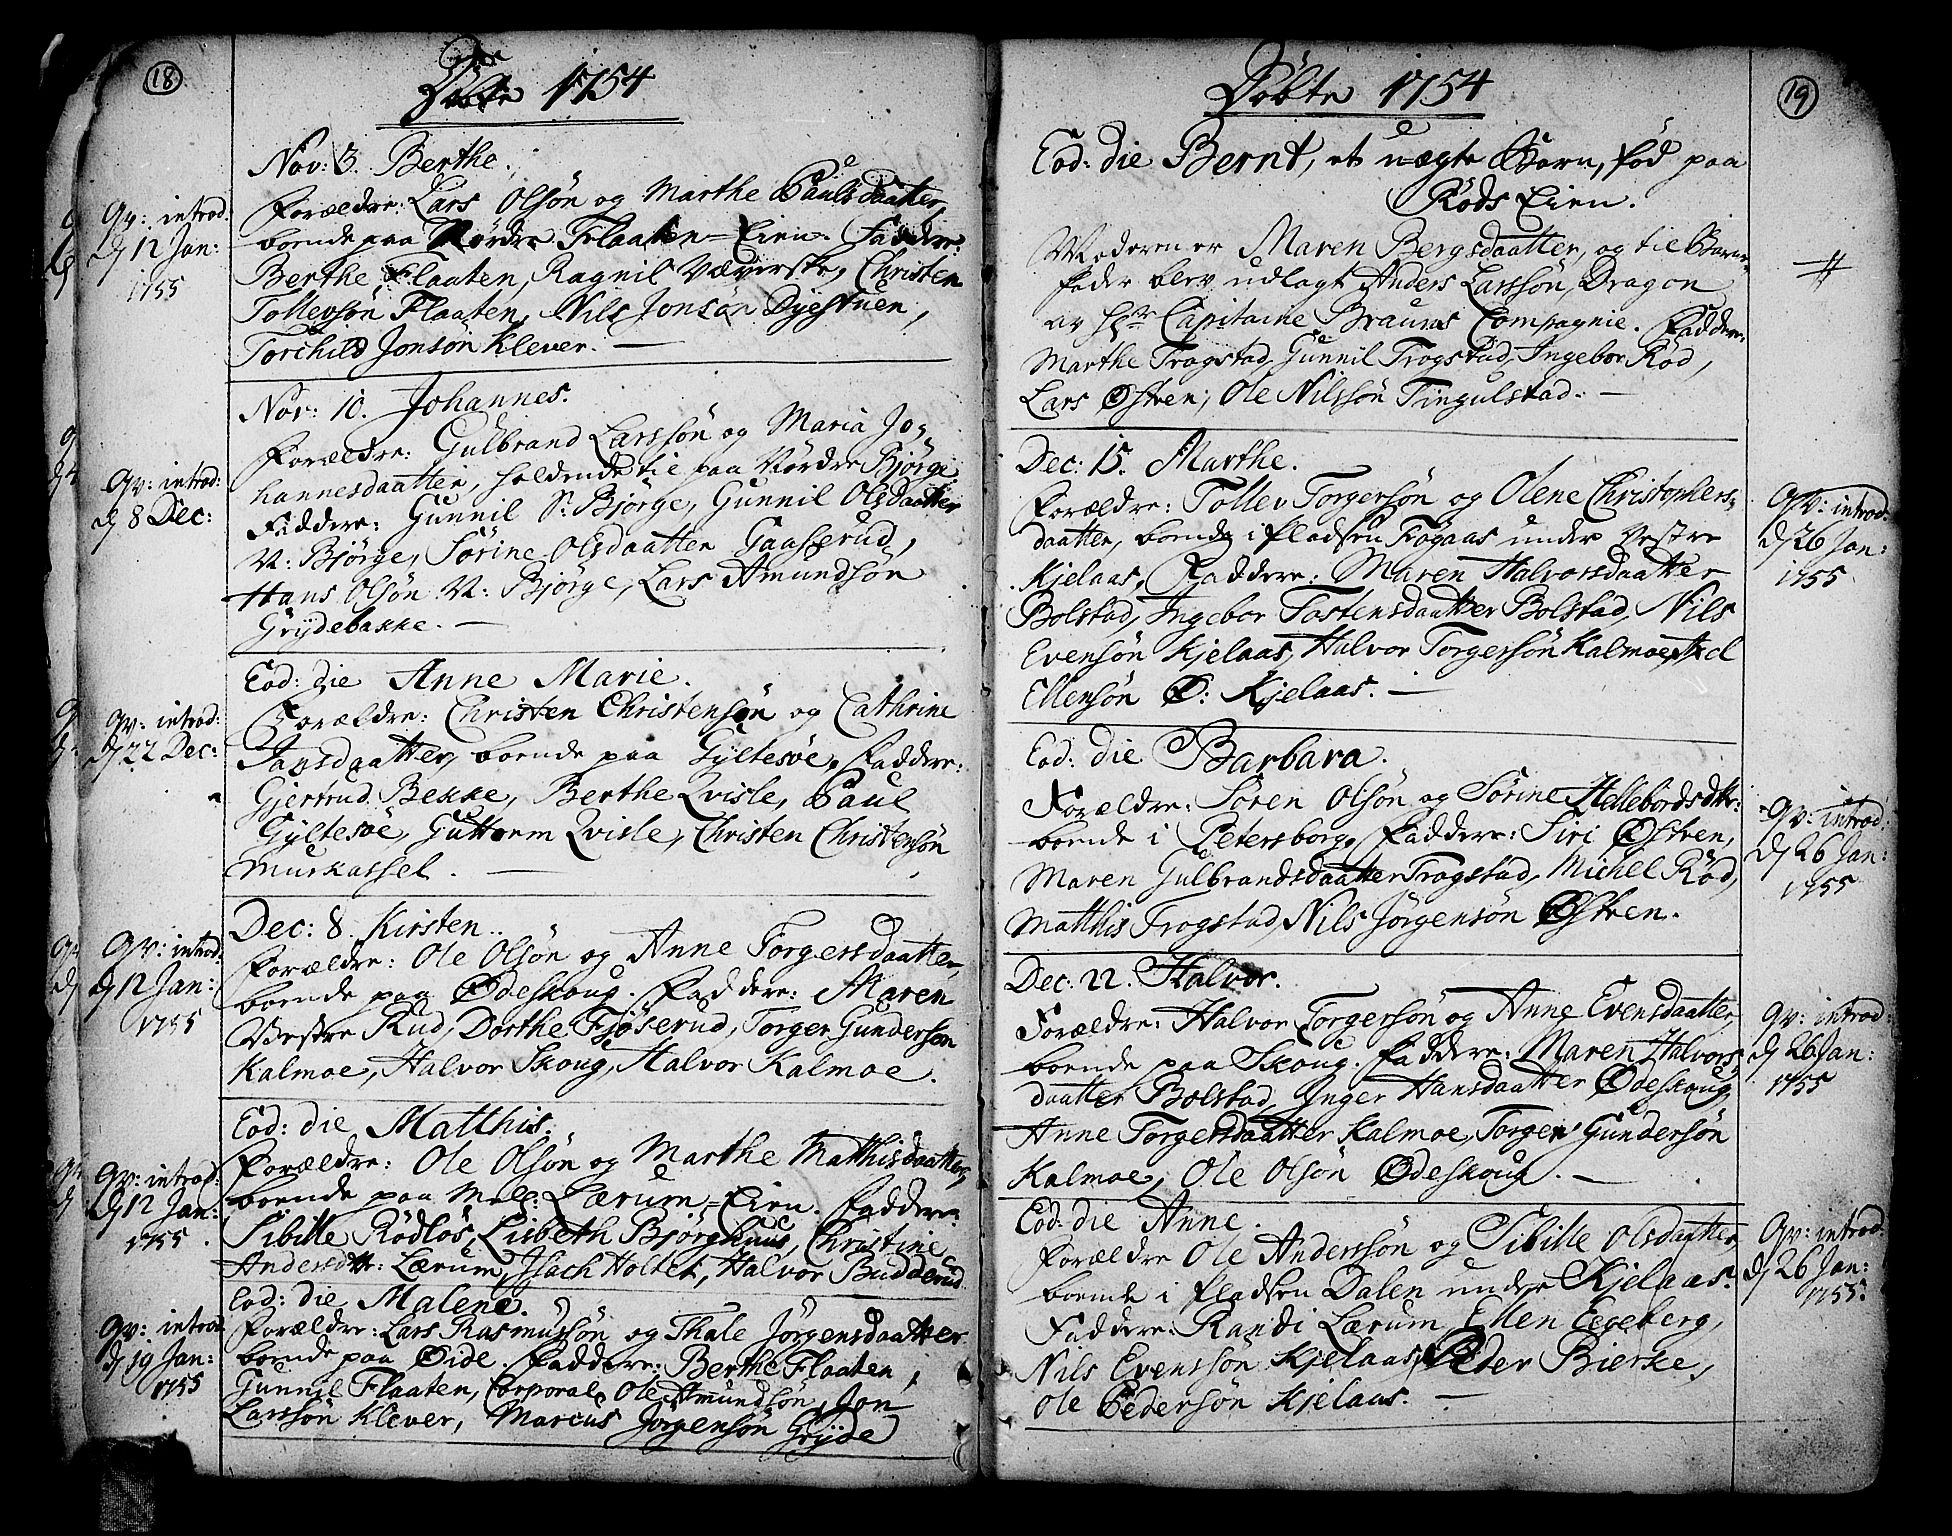 18
Döbte 1754
Nov: 3. Berthe.
Qv: introd.
d 12 Jan:
1755
Forældre: Lars Olsön og Marthe Paulsdaatter,
boende paa Nördre Flaaten-Eien. Faddere:
Berthe Flaaten, Ragnil Væverske, Christen
Tollevsön Flaaten, Nils Jonsön Dyestuen,
Torchild Jonsön Klever. —
Nov: 10. Johannes.
Qv: introd:
d 8 Dec:
Forældre: Gulbrand Larssön og Maria Jo-
hannesdaatter, holdende til paa Nördre Björge
Faddere: Gunnil S: Björge, Gunnil Olsdaatter
N: Björge, Sörine Olsdaatter Gaasserud,
Hans Olsön N: Björge, Lars Amundsön
Grydebakke. —
Eod: die Anne Marie.
Qv: introd:
d 22 Dec:
Forældre: Christen Christensön og Cathrine
Jansdaatter, boende paa Gyltesöe, Faddere:
Gjertrud Bekke, Berthe Qvisle, Paul
Gyltesöe, Guttorm Qvisle, Christen Christensön
Murkassel. —
Dec: 8. Kirsten.
Qv: introd.
d 12 Jan:
1755
Forældre: Ole Olsön og Anne Torgersdaatter,
boende paa Ødeskoug. Faddere: Maren
Vestre Rud, Dorthe Fjöserud, Torger Gundersön
Kalmoe, Halvor Skoug, Halvor Kalmoe.
Eod: die Matthis.
Qv: introd.
d 12 Jan:
1755.
Forældre: Ole Olsön og Marthe Matthisdaatter,
boende paa Mell: Lærum-Eien. Faddere:
Sibille Rödlös, Lisbeth Björghuus, Christine
Andersdtr: Lærum, Isach Holter, Halvor Budderud
Eod: die Malene.
Qv: introd
d 19 Jan:
1755
Forældre: Lars Rasmussön og Thale Jörgensdaatter
boende paa Öide. Faddere: Berthe Flaaten,
Gunnil Flaaten, Corporal Ole Amundsön, Jon
Larssön Klever, Marcus Jörgensön Gryde
19
Döbte 1754
Eod: die Bernt, et uægte Barn, föd paa
Röds Eien.
Moderen er Maren Bergsdaatter, og til Barne-
fader blev udlagt Anders Larssön, Dragon
av Hr Capitaine Brauns Compagnie. Faddere:
Marthe Trogstad, Gunnil Trogstad, Ingebor Röd,
Lars Østren, Ole Nilssön Tingulstad. —
Dec: 15. Marthe.
Forældre: Tollev Torgersön og Olene Christophers-
daatter, boende i Pladsen Fogaas under Vestre
Kjelaas, Faddere: Maren Halvorsdaatter
Bolstad, Ingebor Tostensdaatter Bolstad, Nils
Evensön Kjelaas, Halvor Torgersön Kalmoe, Axel
Ellensön Ø: Kjelaas. —
Qv: introd:
d 26 Jan:
1755
Eod: die Barbara.
Forældre: Sören Olsön og Sörine Hellebordsdtr:
boende i Petersborg, Faddere: Siri Østren,
Maren Gulbrandsdaatter Trogstad, Michel Röd,
Matthis Trogstad, Nils Jörgensön Østren.
Qv: introd:
d 26 Jan:
1755
Dec: 22. Halvor.
Forældre: Halvor Torgersön og Anne Evensdaatter,
boende paa Skoug. Faddere: Maren Halvors-
daatter Bolstad, Inger Hansdaatter Ødeskoug
Anne Torgersdaatter Kalmoe, Torger Gundersön
Kalmoe, Ole Olsön Ødeskoug. —
Qv: introd:
d 26 Jan:
1755
Eod: die Anne.
Forældre Ole Anderssön og Sibille Olsdaatter,
boende i Pladsen Dalen under Kjelaas.
Faddere: Randi Lærum, Ellen Egeberg,
Nils Evenssön Kjelaas, Peder Bierke,
Ole Pedersön Kjelaas. —
Qv: introd:
d 26 Jan:
1755.